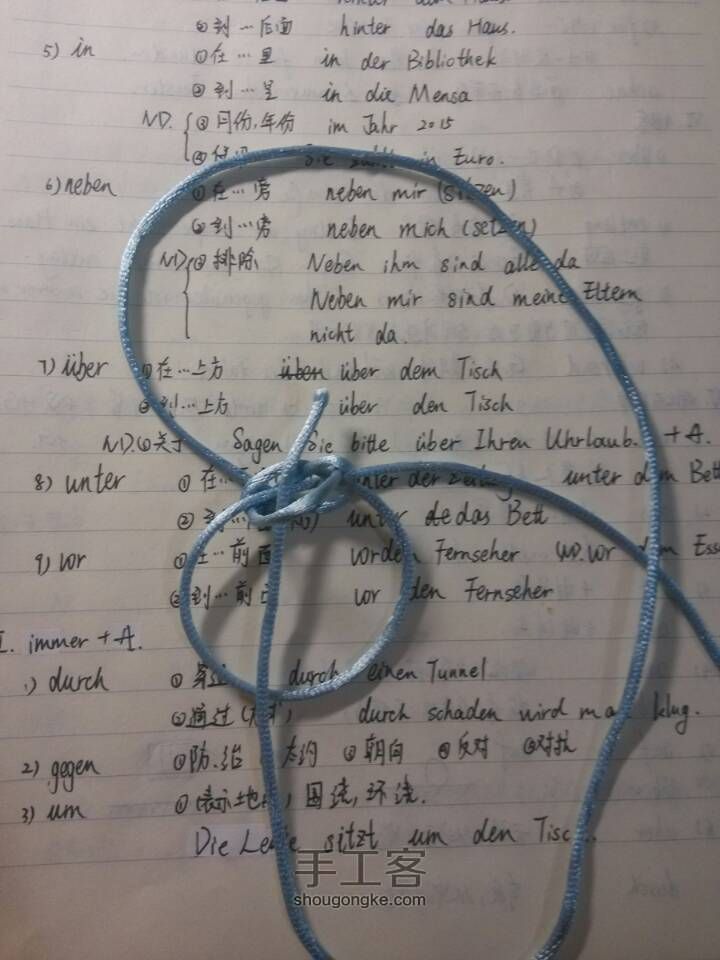 ②到…后面 hinter das Haus.
5) in ①在…里 in der Bibliothek
②到…里 in die Mensa
ND. ③月份,年份 im Jahr 2015
④ in Euro.
6) neben ①在…旁 neben mir (sitzen)
②到…旁 neben mich (setzen)
ND ③排除 Neben ihm sind alle da
Neben mir sind meine Eltern
nicht da.
7) über ①在…上方 über dem Tisch
②到…上方 über den Tisch
ND.③关于 Sagen Sie bitte über Ihren Uhrlaub. +A.
8) unter ①在… unter der unter dem Bett
②到… unter de das Bett
9) vor ①在…前面 vor den Fernseher ND.vor dem Esse
②到…前 vor den Fernseher
I. immer + A.
1) durch ① durch einen Tunnel
②通过(方式) durch schaden wird man klug.
2) gegen ①防.治 ②大约 ③朝向 ④反对 ⑤对抗
3) um ①(表示地点) 围绕,环绕.
Die sitzt um den Tisch.
手工客
shougongke.com